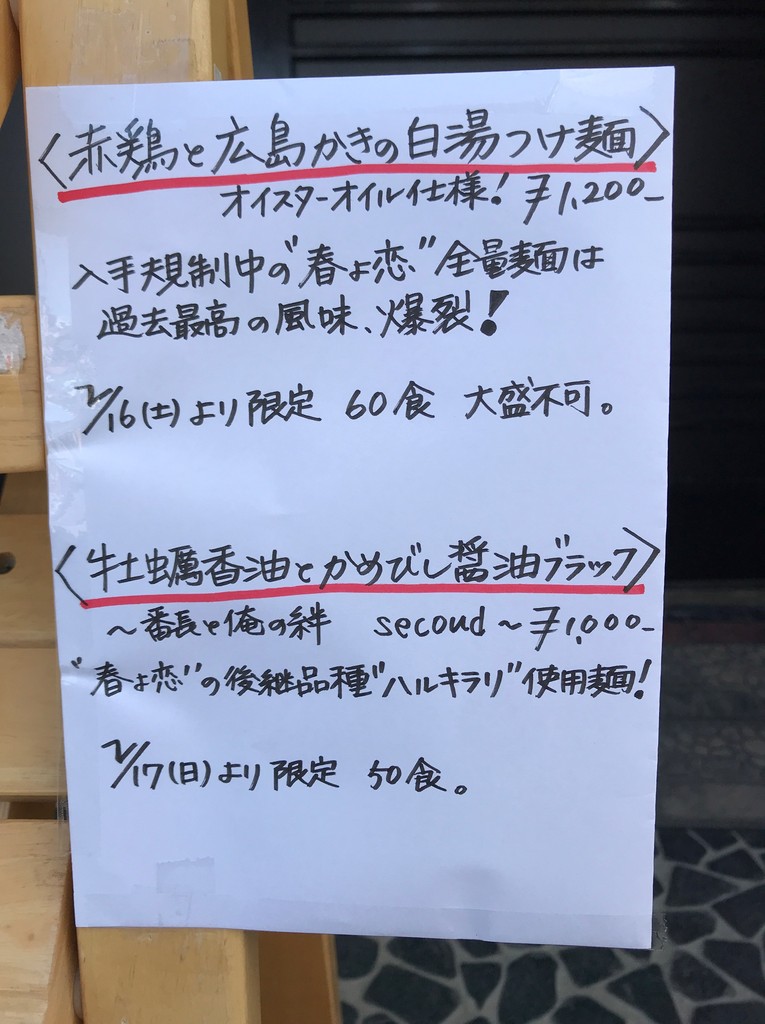 〈赤鶏と広島かきの白湯つけ麺〉
オイスターオイル仕様! ¥1,200-
入手規制中の"春よ恋"全量麺は
過去最高の風味、爆裂!
2/16(土)より限定 60食 大盛不可。
〈牡蠣香油とかめびし醤油ブラック〉
～番長と俺の絆 secoud～ ¥1,000-
"春よ恋"の後継品種"ハルキラリ"使用麺!
2/17(日)より限定 50食。